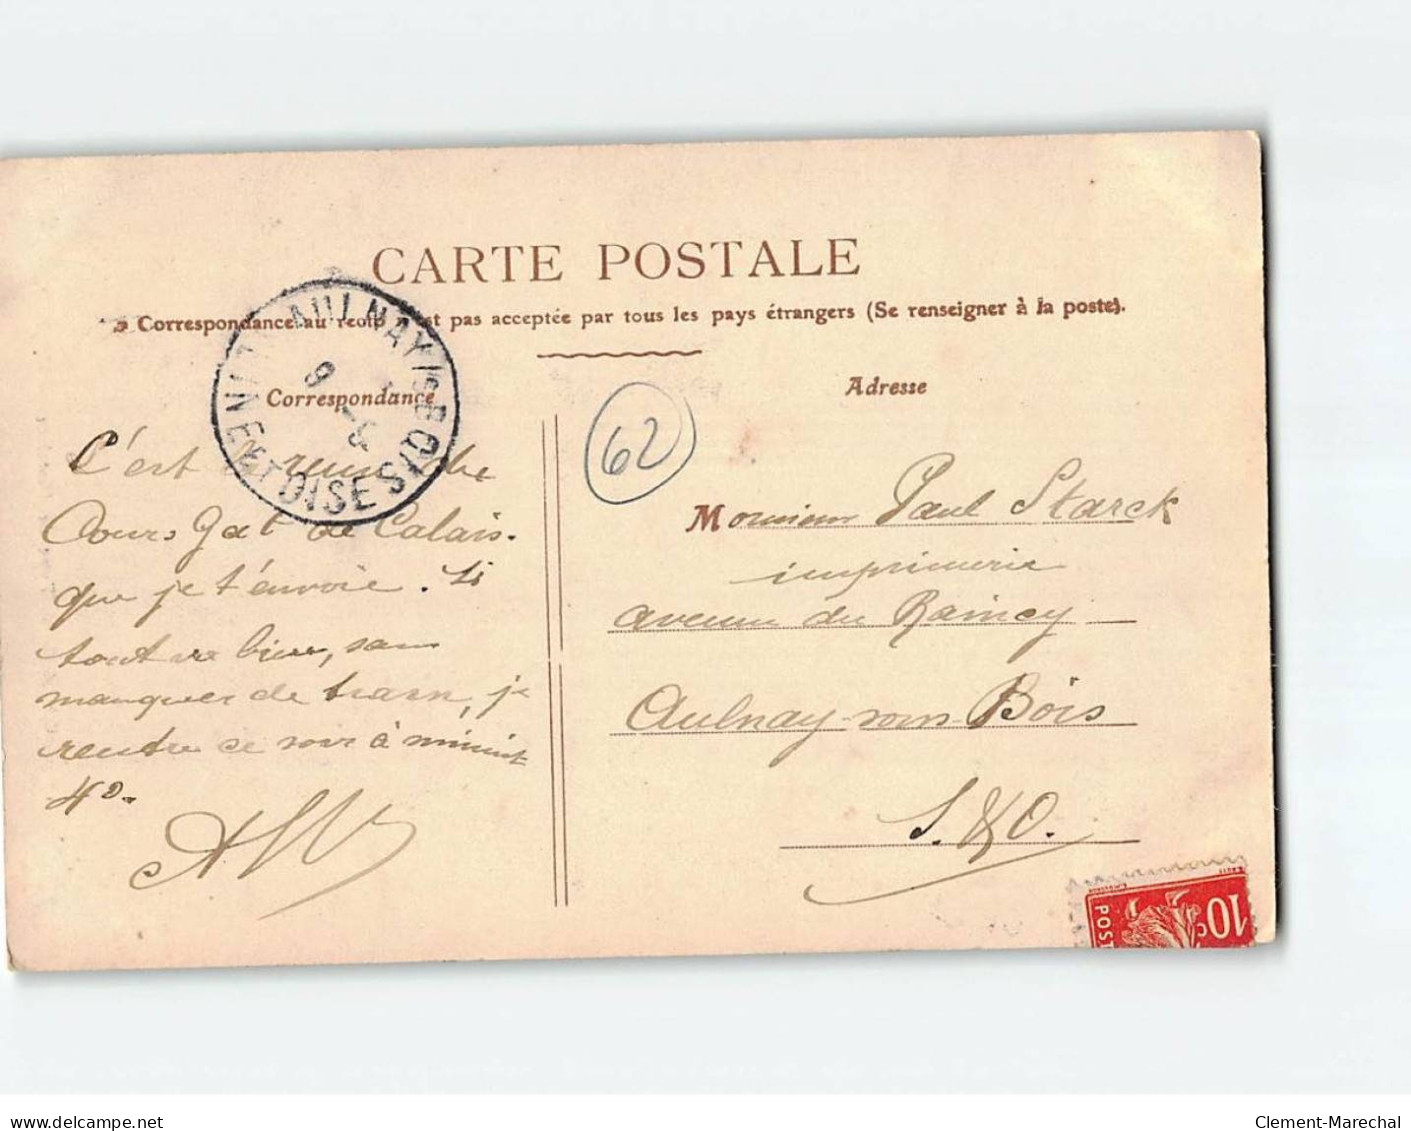 CARTE POSTALE
Correspondance au recto n'est pas acceptée par tous les pays étrangers (Se renseigner à la poste).
AULNAY / S BOIS
SEINE ET OISE
9
Correspondance
Adresse
62
C'est
Cours Gat de Calais.
que je t'envoie. Si
tout va bien, sans
manquer de train, je
rentre ce soir à minuit
40.
Monsieur Paul Starck
imprimerie
avenue du Raincy
Aulnay-sous-Bois
S. & O.
10c
POST
www.delcampe.net
Clement-Marechal